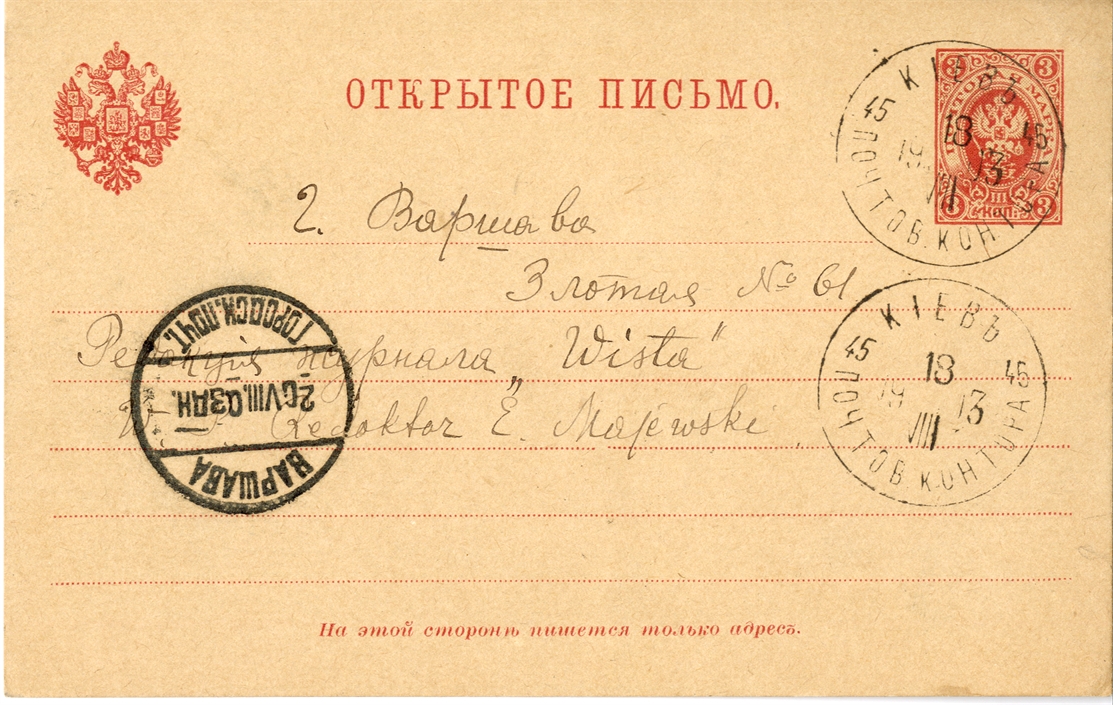 ОТКРЫТОЕ ПИСЬМО.
3 3
ПОЧТОВ МАРКА
3 III КОП. 3
КІЕВЪ
45 18 45
19 13
VIII
ПОЧТОВ. КОНТОРА
г. Варшава
Злотая № 61
Редакція журнала „Wisła"
W. P. Redaktor E. Majewski
КІЕВЪ
45 18 45
19 13
VIII
ПОЧТОВ. КОНТОРА
ВАРШАВА
2 VIII. 03 ДН.
ГОРОДСК. ПОЧТ.
На этой сторонѣ пишется только адресъ.